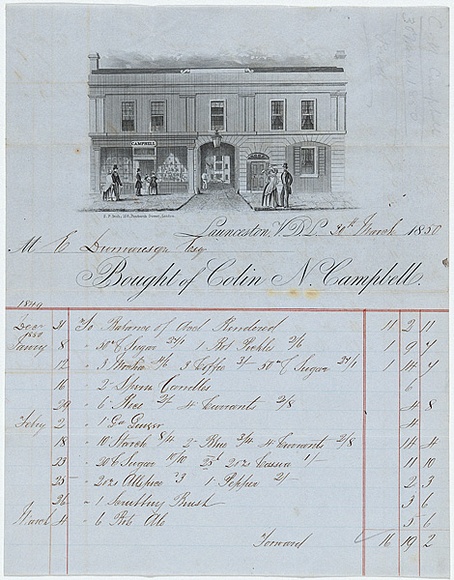 CAMPBELL
Launceston, V.D.L. 30th March 1850
M E Dumaresq Esq
Bought of Colin N. Campbell.
1849
Decr 31 To Balance of Acct Rendered 11 2 11
1850
Jany 8 " 30 lb Sugar 1 Bot Pickle 2/6 1 9 7
12 " 3 Coffee 30 lb Sugar 1 14 7
16 " 2 Sperm Candles 6
29 " 6 Rice 2/ 4 Currants 2/8 4 8
Feby 2 " 1 Ginger 4
18 " 10 Starch 2 Blue 4 Currants 2/8 14 4
23 " 20 lb Sugar 10/10 2 oz Cassia 1/- 11 10
25 " 2 oz Allspice 3 1 Pepper 2/- 2 3
26 " 1 Scrubbing Brush 3 6
March 4 " 6 Bot Ale 5 6
Forward 16 19 2